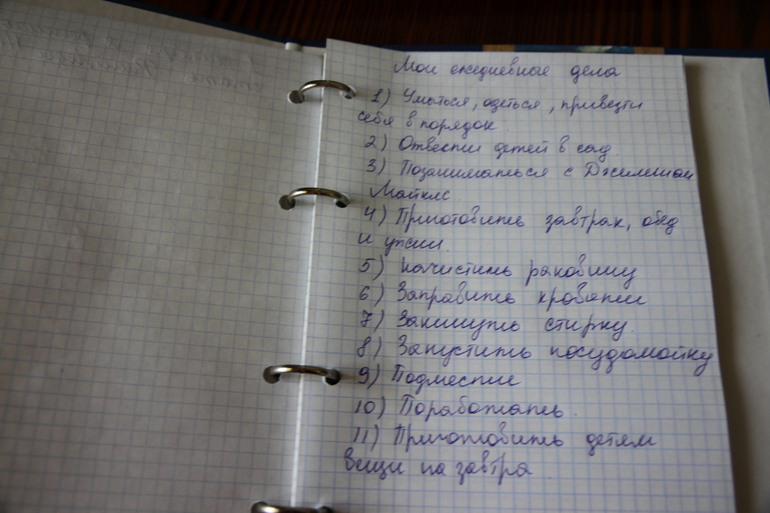 Мои ежедневные дела
1) Умыться, одеться, привезти
себя в порядок
2) Отвести детей в сад
3) Позаниматься с Джилиан
Майклс
4) Приготовить завтрак, обед
и ужин.
5) Начистить раковину
6) Заправить кровати
7) Закинуть стирку.
8) Запустить посудомойку
9) Подмести
10) Поработать.
11) Приготовить детям
вещи на завтра